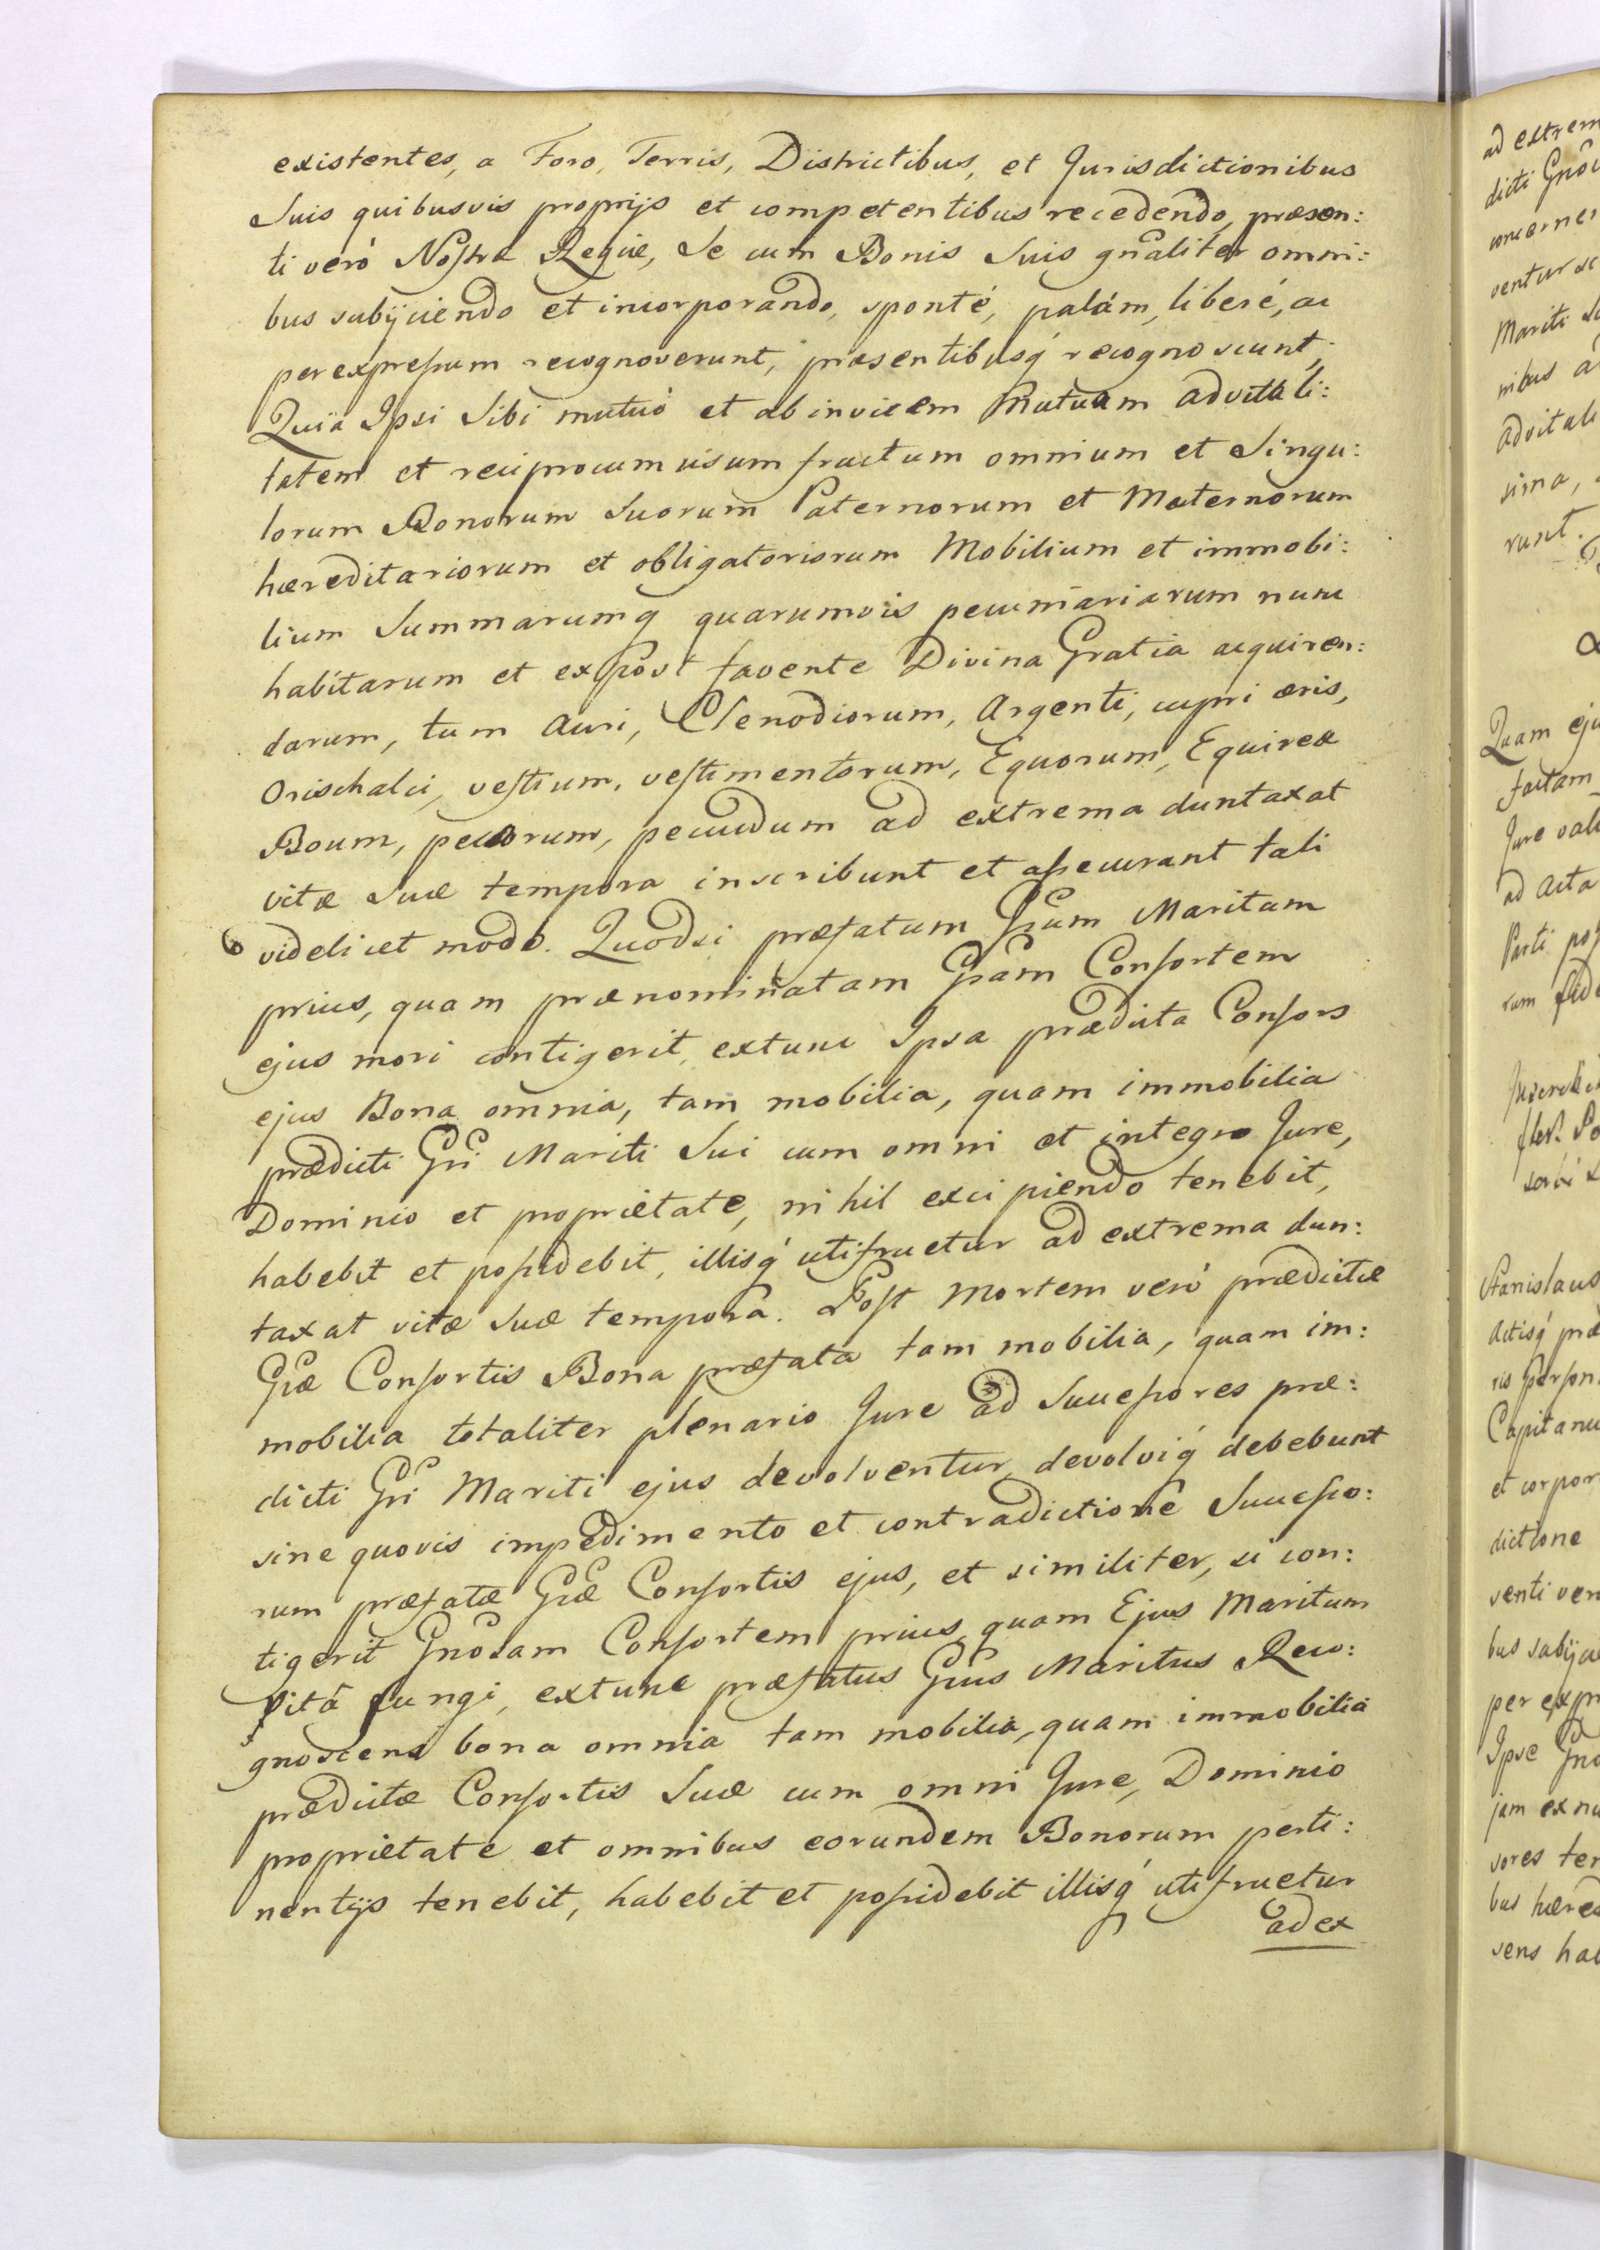 existentes, a Foro, Terris, Districtibus, et Jurisdictionibus
Suis quibusvis proprijs et competentibus recedendo, præsen:
ti verò Nostræ Regiæ, Se cum Bonis Suis gnãliter omni:
bus subijciendo et incorporando, sponté, palám, liberé, ac
per expressum recognoverunt, præsentibusq́ recognoscunt;
Quia Ipsi Sibi mutuò et ab invicem Mutuam advitali:
tatem et reciprocum usum fructum omnium et Singu:
lorum Bonorum Suorum Paternorum et Maternorum
hæreditariorum et obligatoriorum Mobilium et immobi:
lium Summarumq quarumvis pecuniariarum nunc
habitarum et expost favente Divina Gratia acquiren:
darum, tum Auri, Clenodiorum, Argenti, cupri æris,
Orischalci, vestium, vestimentorum, Equorum, Equireæ
Boum, pecorum, pecudum ad extrema duntaxat
vitæ Suæ tempora inscribunt et assecurant tali
videlicet modo. Quodsi præfatum Gsum Maritum
prius, quam prænominatam Gsam Consortem
ejus mori contigerit, extunc Ipsa prædicta Consors
ejus Bona omnia, tam mobilia, quam immobilia
prædicti Gsi Mariti Sui cum omni et integro Jure,
Dominio et proprietate, nihil excipiendo tenebit,
habebit et possidebit, illisq́ utifruetur ad extrema dun:
taxat vitæ Suæ tempora. Post Mortem verò prædictæ
Gsæ Consortis Bona præfata tam mobilia, quam im:
mobilia totaliter plenario Jure ad Successores præ:
dicti Gsi Mariti ejus devolventur, devolviq́ debebunt
sine quovis impedimento et contradictione Successo:
rum præfatæ Gsæ Consortis ejus, et similiter, si con:
tigerit Gnosam Consortem prius quam Ejus Maritum
vitâ fungi, extunc præfatus Gsus Maritus Reco:
gnoscens bona omnia tam mobilia, quam immobilia
prædictæ Consortis Suæ cum omni Jure, Dominio
proprietate et omnibus eorundem Bonorum perti:
nentijs tenebit, habebit et possidebit illisq́ utifruetur
ad ex
ad extrem
dicti
ventur
Mariti
nibus
advitali
sima,
runt.
Quam eju
factam
Jure
ad Acta
Parti
rum
Stanislaus
Actisq́ præ
ris person
Capitanu
et corpor
dictione
senti
bus subijci
per expr
Ipse Gno
jam ex nu
sores
bus hæred
sens